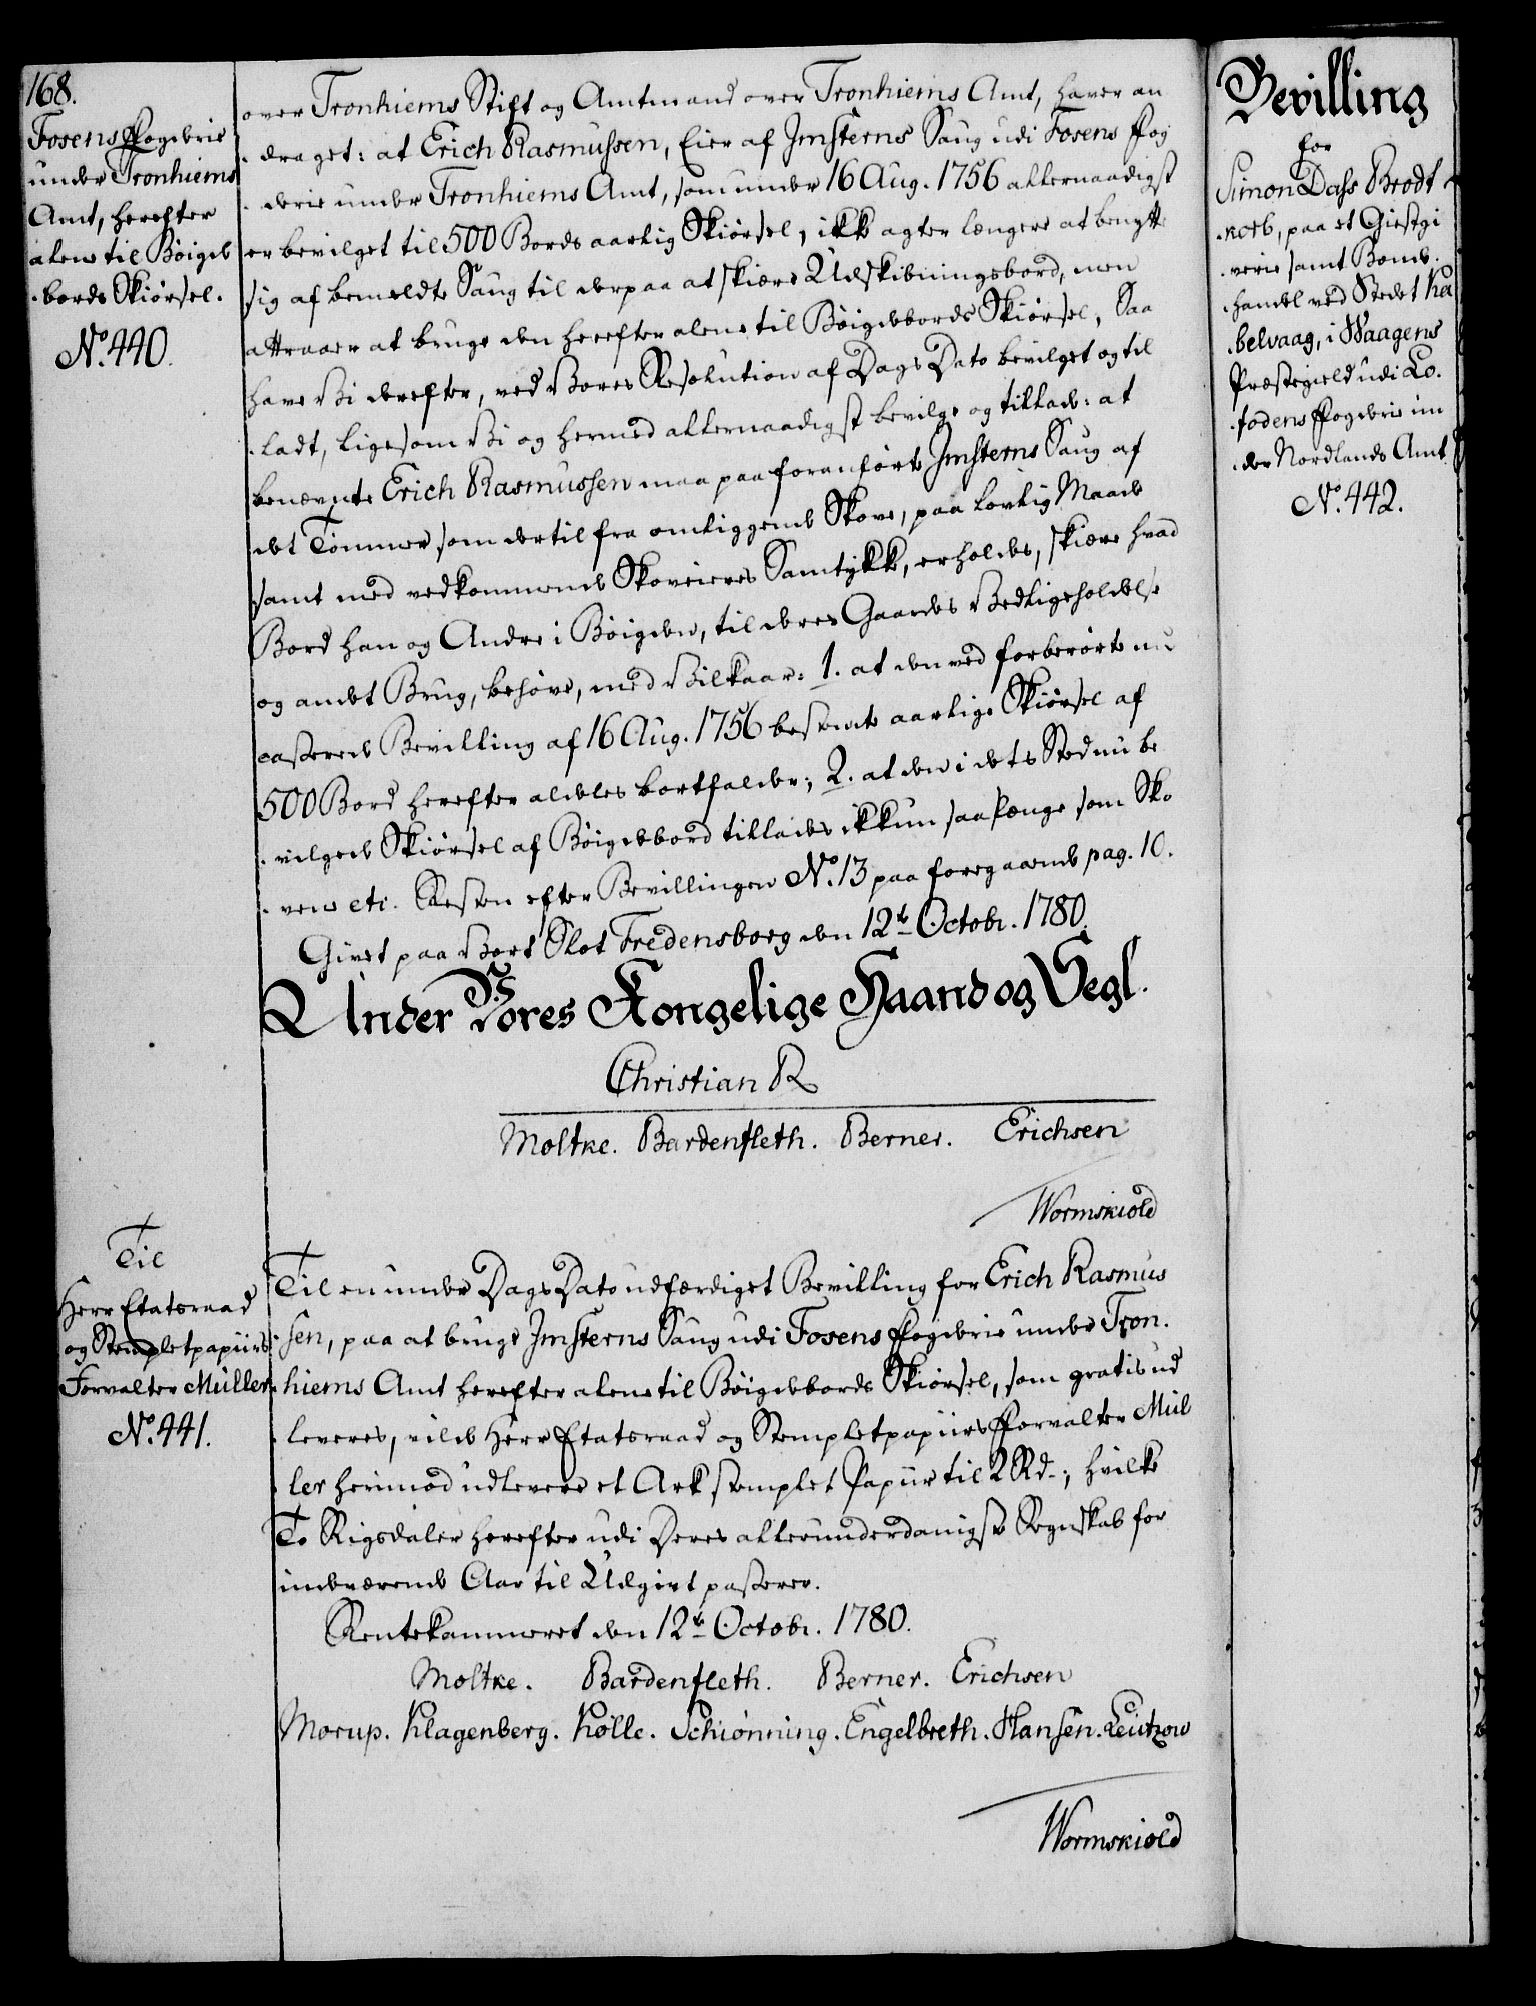 168.
Fosens Fogderie
under Tronhiems
Amt, herefter
alene til Böigde
bords Skiörsel.
No. 440.
over Tronhiems Stift og Amtmand over Tronhiems Amt, haver an
draget: at Erich Rasmussen, Eier af Jmsterns Saug udi Fosens Fog
derie under Tronhiems Amt, som under 16 Aug. 1756 allernaadigst
er bevilget til 500 Bords aarlig Skiörsel, ikke agter længere at benytte
sig af bemeldte Saug til derpaa at skiære Udskibningsbord, men
attraaer at bruge den herefter alene til Böigdebords Skiörsel, Saa
have Vi derefter, ved Vores Resolution af Dags Dato bevilget og til
ladt, ligesom Vi og hermed allernaadigst bevilge og tillade: at
benævnte Erich Rasmussen maa paa foranförte Jmsterns Saug af
det Tömmer som dertil fra omliggende Skove, paa lovlig Maade
samt med vedkommende Skoveieres Samtykke, erholdes, skiære hvad
Bord han og Andre i Böigden, til deres Gaardes Vedligeholdelse
og andet Brug, behöve, med Vilkaar: 1. at den ved forberörte nu
casserede Bevilling af 16 Aug. 1756 bestemte aarlige Skiörsel af
500 Bord herefter aldeles bortfalder; 2. at den i dets Sted nu be
vilgede Skiörsel af Böigdebord tillades ikkun saa længe som Sko
vene etc. Resten efter Bevillingen No. 13 paa foregaaende pag. 10.
Givet paa Vort Slot Fredensborg den 12te Octobr. 1780.
Under Vores Kongelige Haand og Segl.
Christian R
Moltke. Bardenfleth. Berner. Erichsen
Wormskiold
Til
Herr Etatsraad
og Stempletpapiirs
Forvalter Müller
No. 441.
Til en under Dags Dato udfærdiget Bevilling for Erich Rasmus
sen, paa at bruge Jmsterns Saug udi Fosens Fogderie under Tron.
hiems Amt herefter alene til Böigdebords Skiörsel, som gratis ud
leveres, vilde Herr Etatsraad og Stempletpapiirs Forvalter Mül
ler herimod udlevere et Ark stemplet Papiir til 2 Rd.; hvilke
To Rigsdaler herefter udi Deres allerunderdanigste Regnskab for
indeværende Aar til Udgivt passerer.
Rentekammeret den 12te Octobr. 1780.
Moltke. Bardenfleth. Berner. Erichsen
Morup. Klagenberg. Kölle. Schiönning. Engelbreth. Hansen. Leützow
Wormskiold
Bevilling
for
Simon Dass Brodt
korb, paa et Giestgi
verie samt Bonde.
handel ved Stedet Ka
belvaag, i Waagens
Præstegield udi Lo.
fodens Fogderie un
der Nordlands Amt
No. 442.